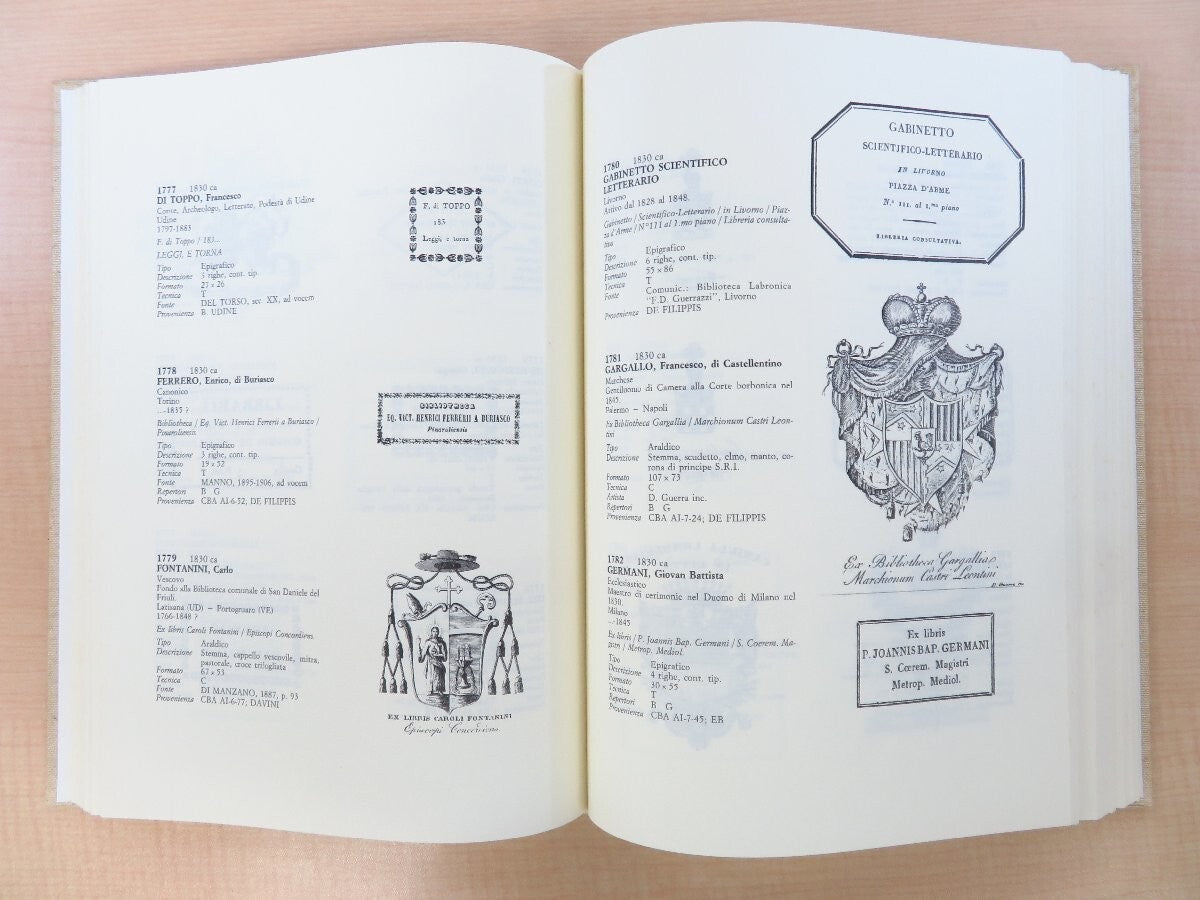 1777 1830 ca
DI TOPPO, Francesco
Conte, Archeologo, Letterato, Podestà di Udine
Udine
1797-1883
F. di Toppo / 183...
LEGGI, E TORNA
Tipo Epigrafico
Descrizione 3 righe, cont. tip.
Formato 27 x 26
Tecnica T
Fonte DEL TORSO, sec. XX, ad vocem
Provenienza B. UDINE
F. di TOPPO
183
Leggi, e torna
1778 1830 ca
FERRERO, Enrico, di Buriasco
Canonico
Torino
...-1835 ?
Bibliotheca / Eq. Vict. Henrici Ferrerii a Buriasco /
Pinaroliensis
Tipo Epigrafico
Descrizione 3 righe, cont. tip.
Formato 19 x 52
Tecnica T
Fonte MANNO, 1895-1906, ad vocem
Repertori B G
Provenienza CBA AI-6-52; DE FILIPPIS
BIBLIOTHECA
EQ. VICT. HENRICI FERRERII A BURIASCO
Pinaroliensis
1779 1830 ca
FONTANINI, Carlo
Vescovo
Fondo alla Biblioteca comunale di San Daniele del
Friuli.
Latisana (UD) – Portogruaro (VE)
1766-1848 ?
Ex libris Caroli Fontanini / Episcopi Concordiens.
Tipo Araldico
Descrizione Stemma, cappello vescovile, mitra,
pastorale, croce trifogliata
Formato 67 x 53
Tecnica C
Fonte DI MANZANO, 1887, p. 93
Provenienza CBA AI-6-77; DAVINI
EX LIBRIS CAROLI FONTANINI
Episcopi Concordiens.
1780 1830 ca
GABINETTO SCIENTIFICO
LETTERARIO
Livorno
Attivo dal 1828 al 1848.
Gabinetto / Scientifico-Letterario / in Livorno / Piaz-
za d'Arme / N°111 al 1.mo piano / Libreria consulta-
tiva
Tipo Epigrafico
Descrizione 6 righe, cont. tip.
Formato 55 x 86
Tecnica T
Fonte Comunic.: Biblioteca Labronica
"F.D. Guerrazzi", Livorno
Provenienza DE FILIPPIS
GABINETTO
SCIENTIFICO-LETTERARIO
IN LIVORNO
PIAZZA D'ARME
N.° 111. al 1.mo piano
LIBRERIA CONSULTATIVA.
1781 1830 ca
GARGALLO, Francesco, di Castellentino
Marchese
Gentiluomo di Camera alla Corte borbonica nel
1845.
Palermo – Napoli
Ex Bibliotheca Gargallia / Marchionum Castri Leon-
tini
Tipo Araldico
Descrizione Stemma, scudetto, elmo, manto, co-
rona di principe S.R.I.
Formato 107 x 73
Tecnica C
Artista D. Guerra inc.
Repertori B G
Provenienza CBA AI-7-24; DE FILIPPIS
Ex Bibliotheca Gargallia
Marchionum Castri Leontini
1782 1830 ca
GERMANI, Giovan Battista
Ecclesiastico
Maestro di cerimonie nel Duomo di Milano nel
1830.
Milano
...-1845
Ex libris / P. Joannis Bap. Germani / S. Coerem. Ma-
gistri / Metrop. Mediol.
Tipo Epigrafico
Descrizione 4 righe, cont. tip.
Formato 30 x 55
Tecnica T
Repertori B G
Provenienza CBA AI-7-45; EB
Ex libris
P. JOANNIS BAP. GERMANI
S. Cœrem. Magistri
Metrop. Mediol.